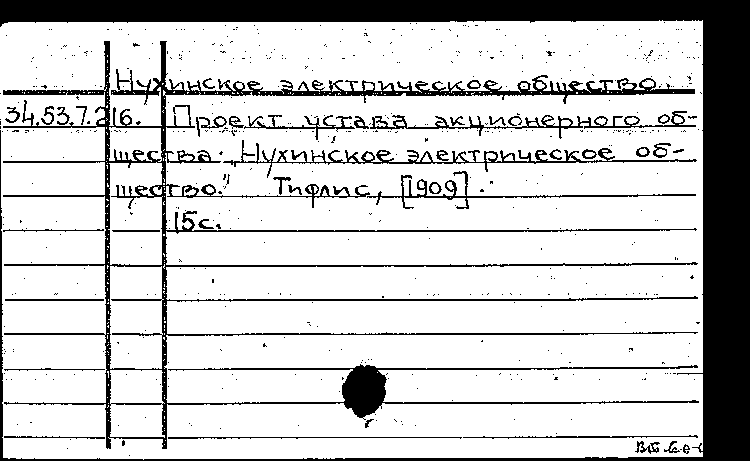 Нухинское электрическое общество.
34.53.7.216. Проект устава акционерного об-
щества: „Нухинское электрическое об-
щество." Тифлис, [1909].
15с.